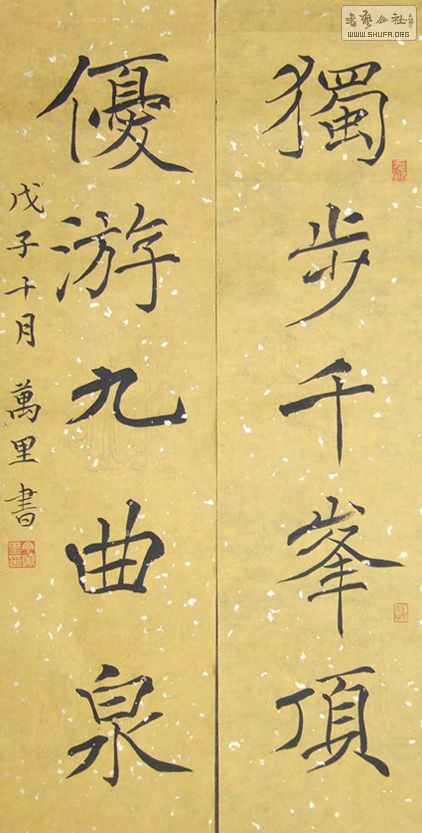 獨步千峯頂
優游九曲泉
戊子十月 萬里書
書藝公社
WWW.SHUFA.ORG